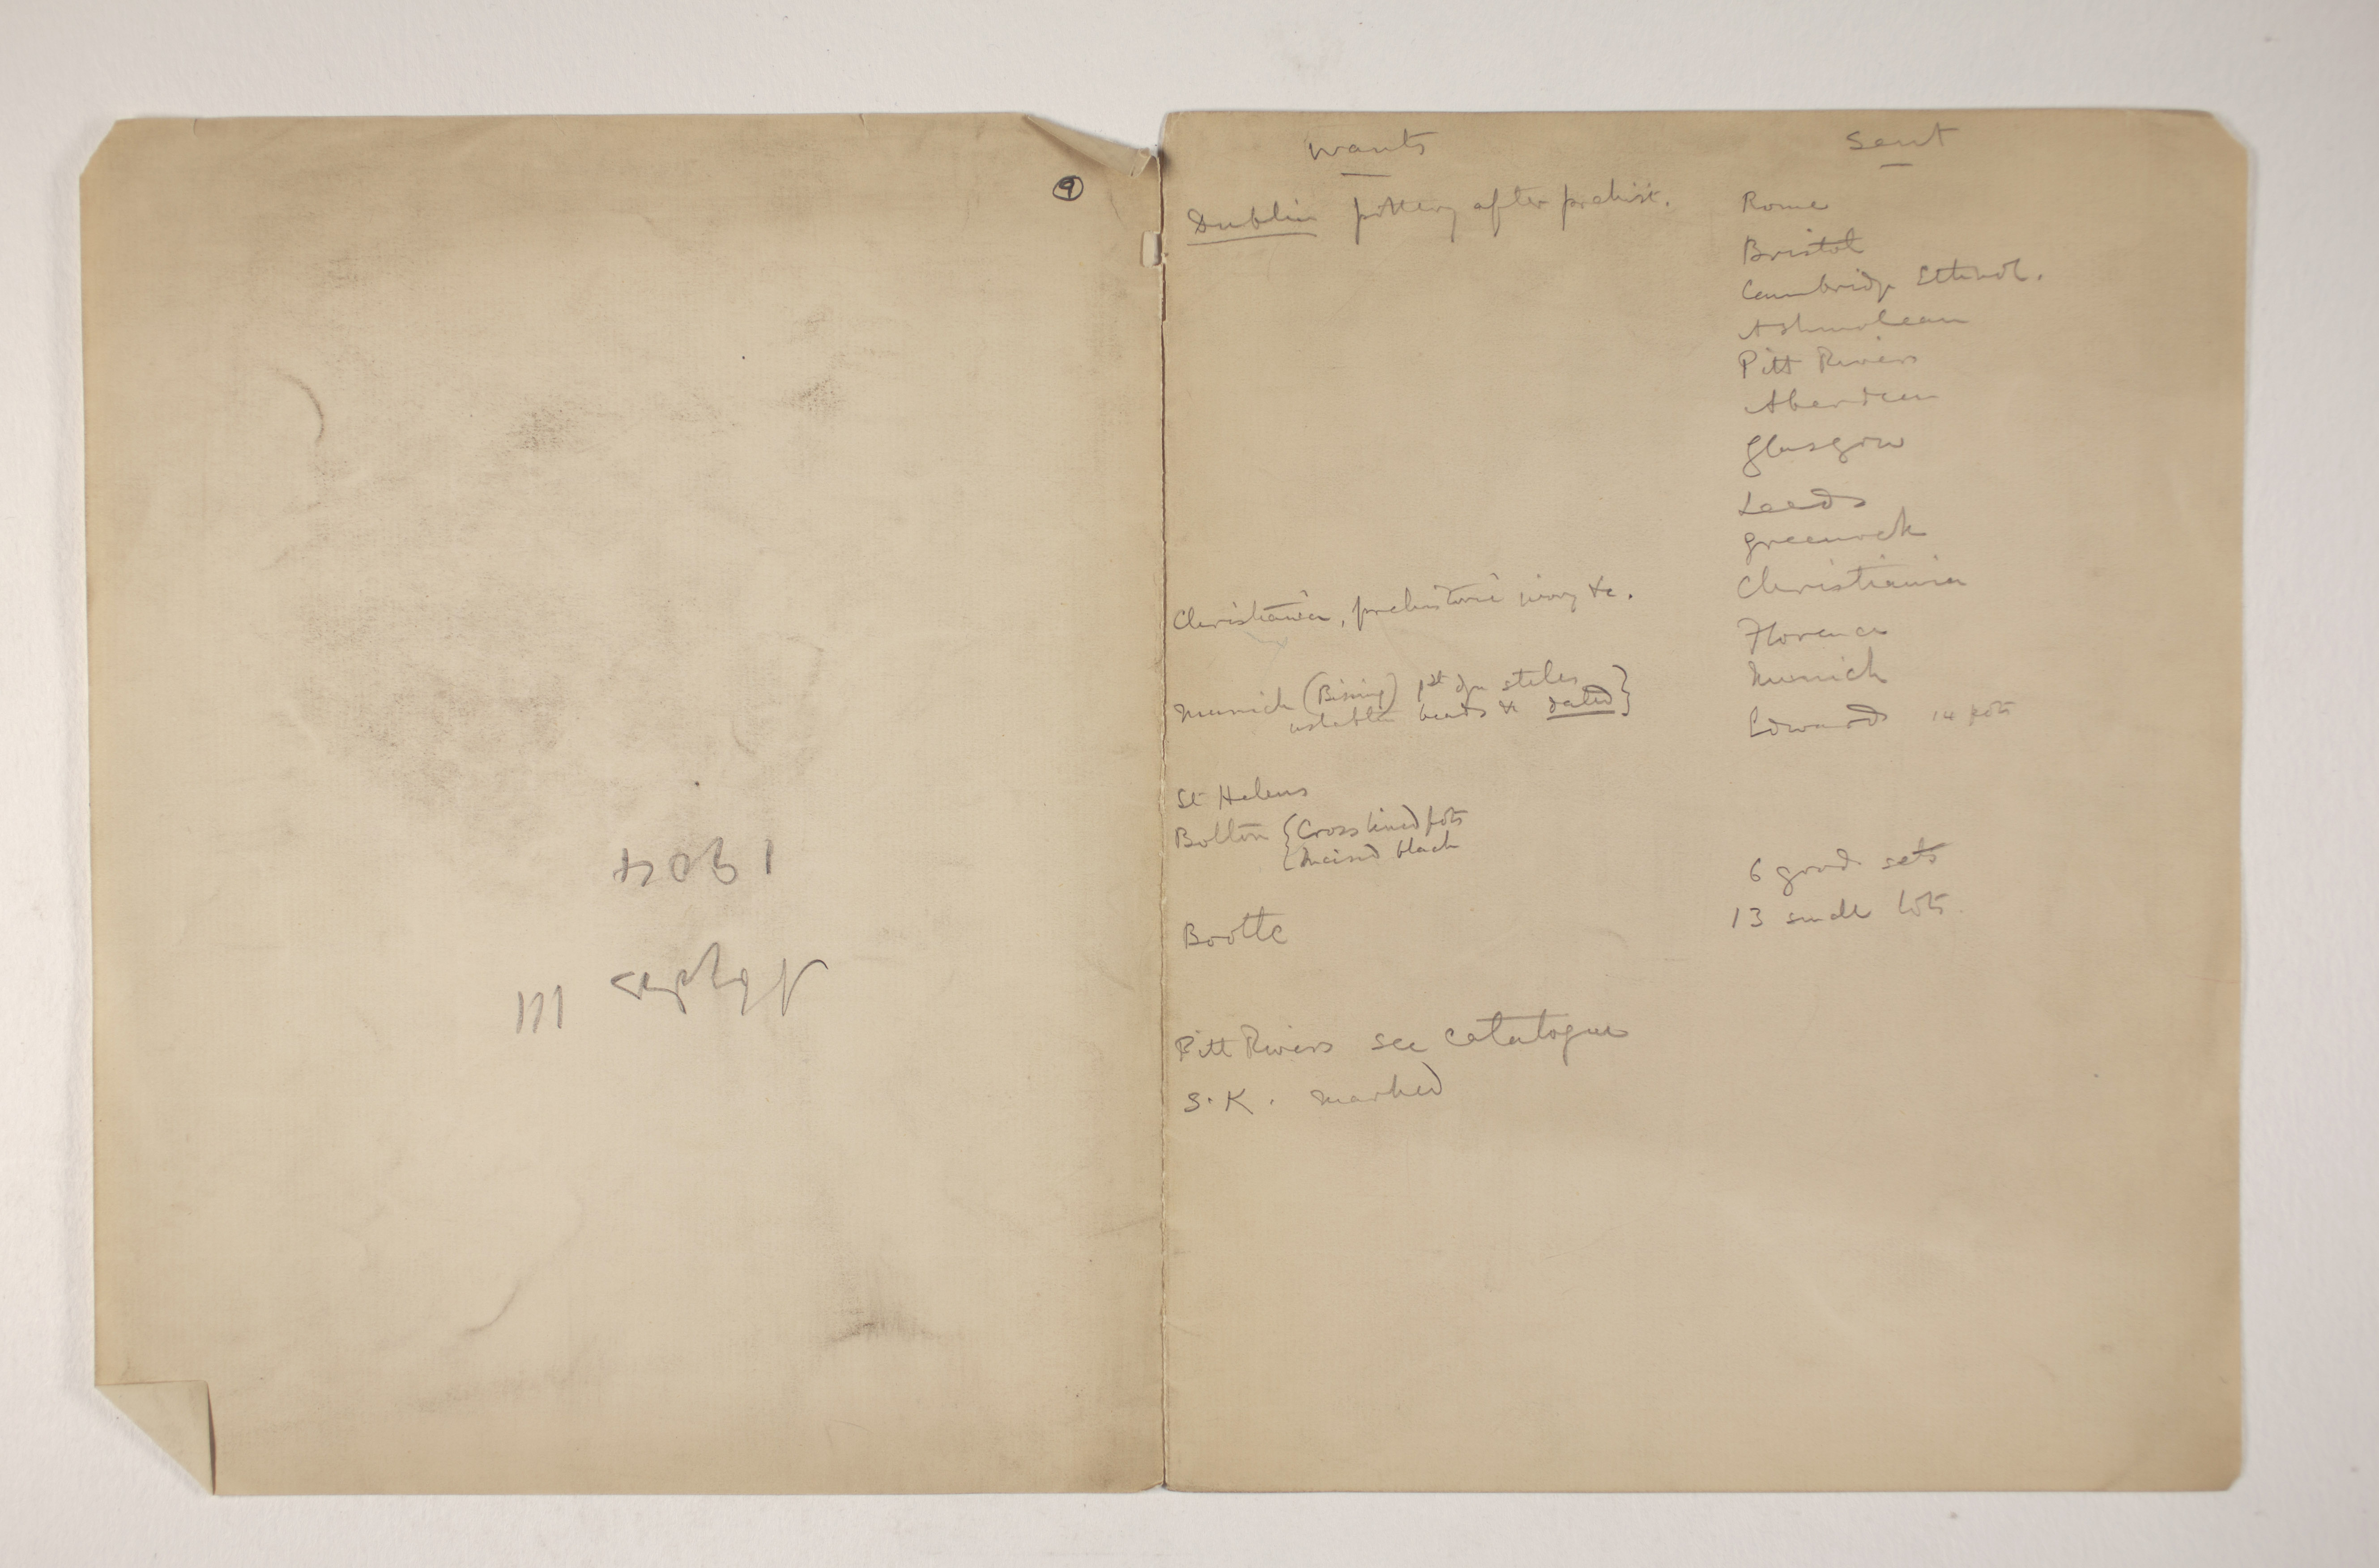 9
1904
Abydos III
wants
Dublin pottery after prehist.
Christiania, prehistoric ivory &c.
Munich (Bissing) 1st dyn steles
beads &c dated
St Helens
Bolton { Cross lined pots
Incised black
Bootle
Pitt Rivers see catalogue
S.K. marked
Sent
Rome
Bristol
Cambridge Ethnol.
Ashmolean
Pitt Rivers
Aberdeen
Glasgow
Leeds
Greenock
Christiania
Florence
Munich
Edwards 14 pots
6 good sets
13 small lots